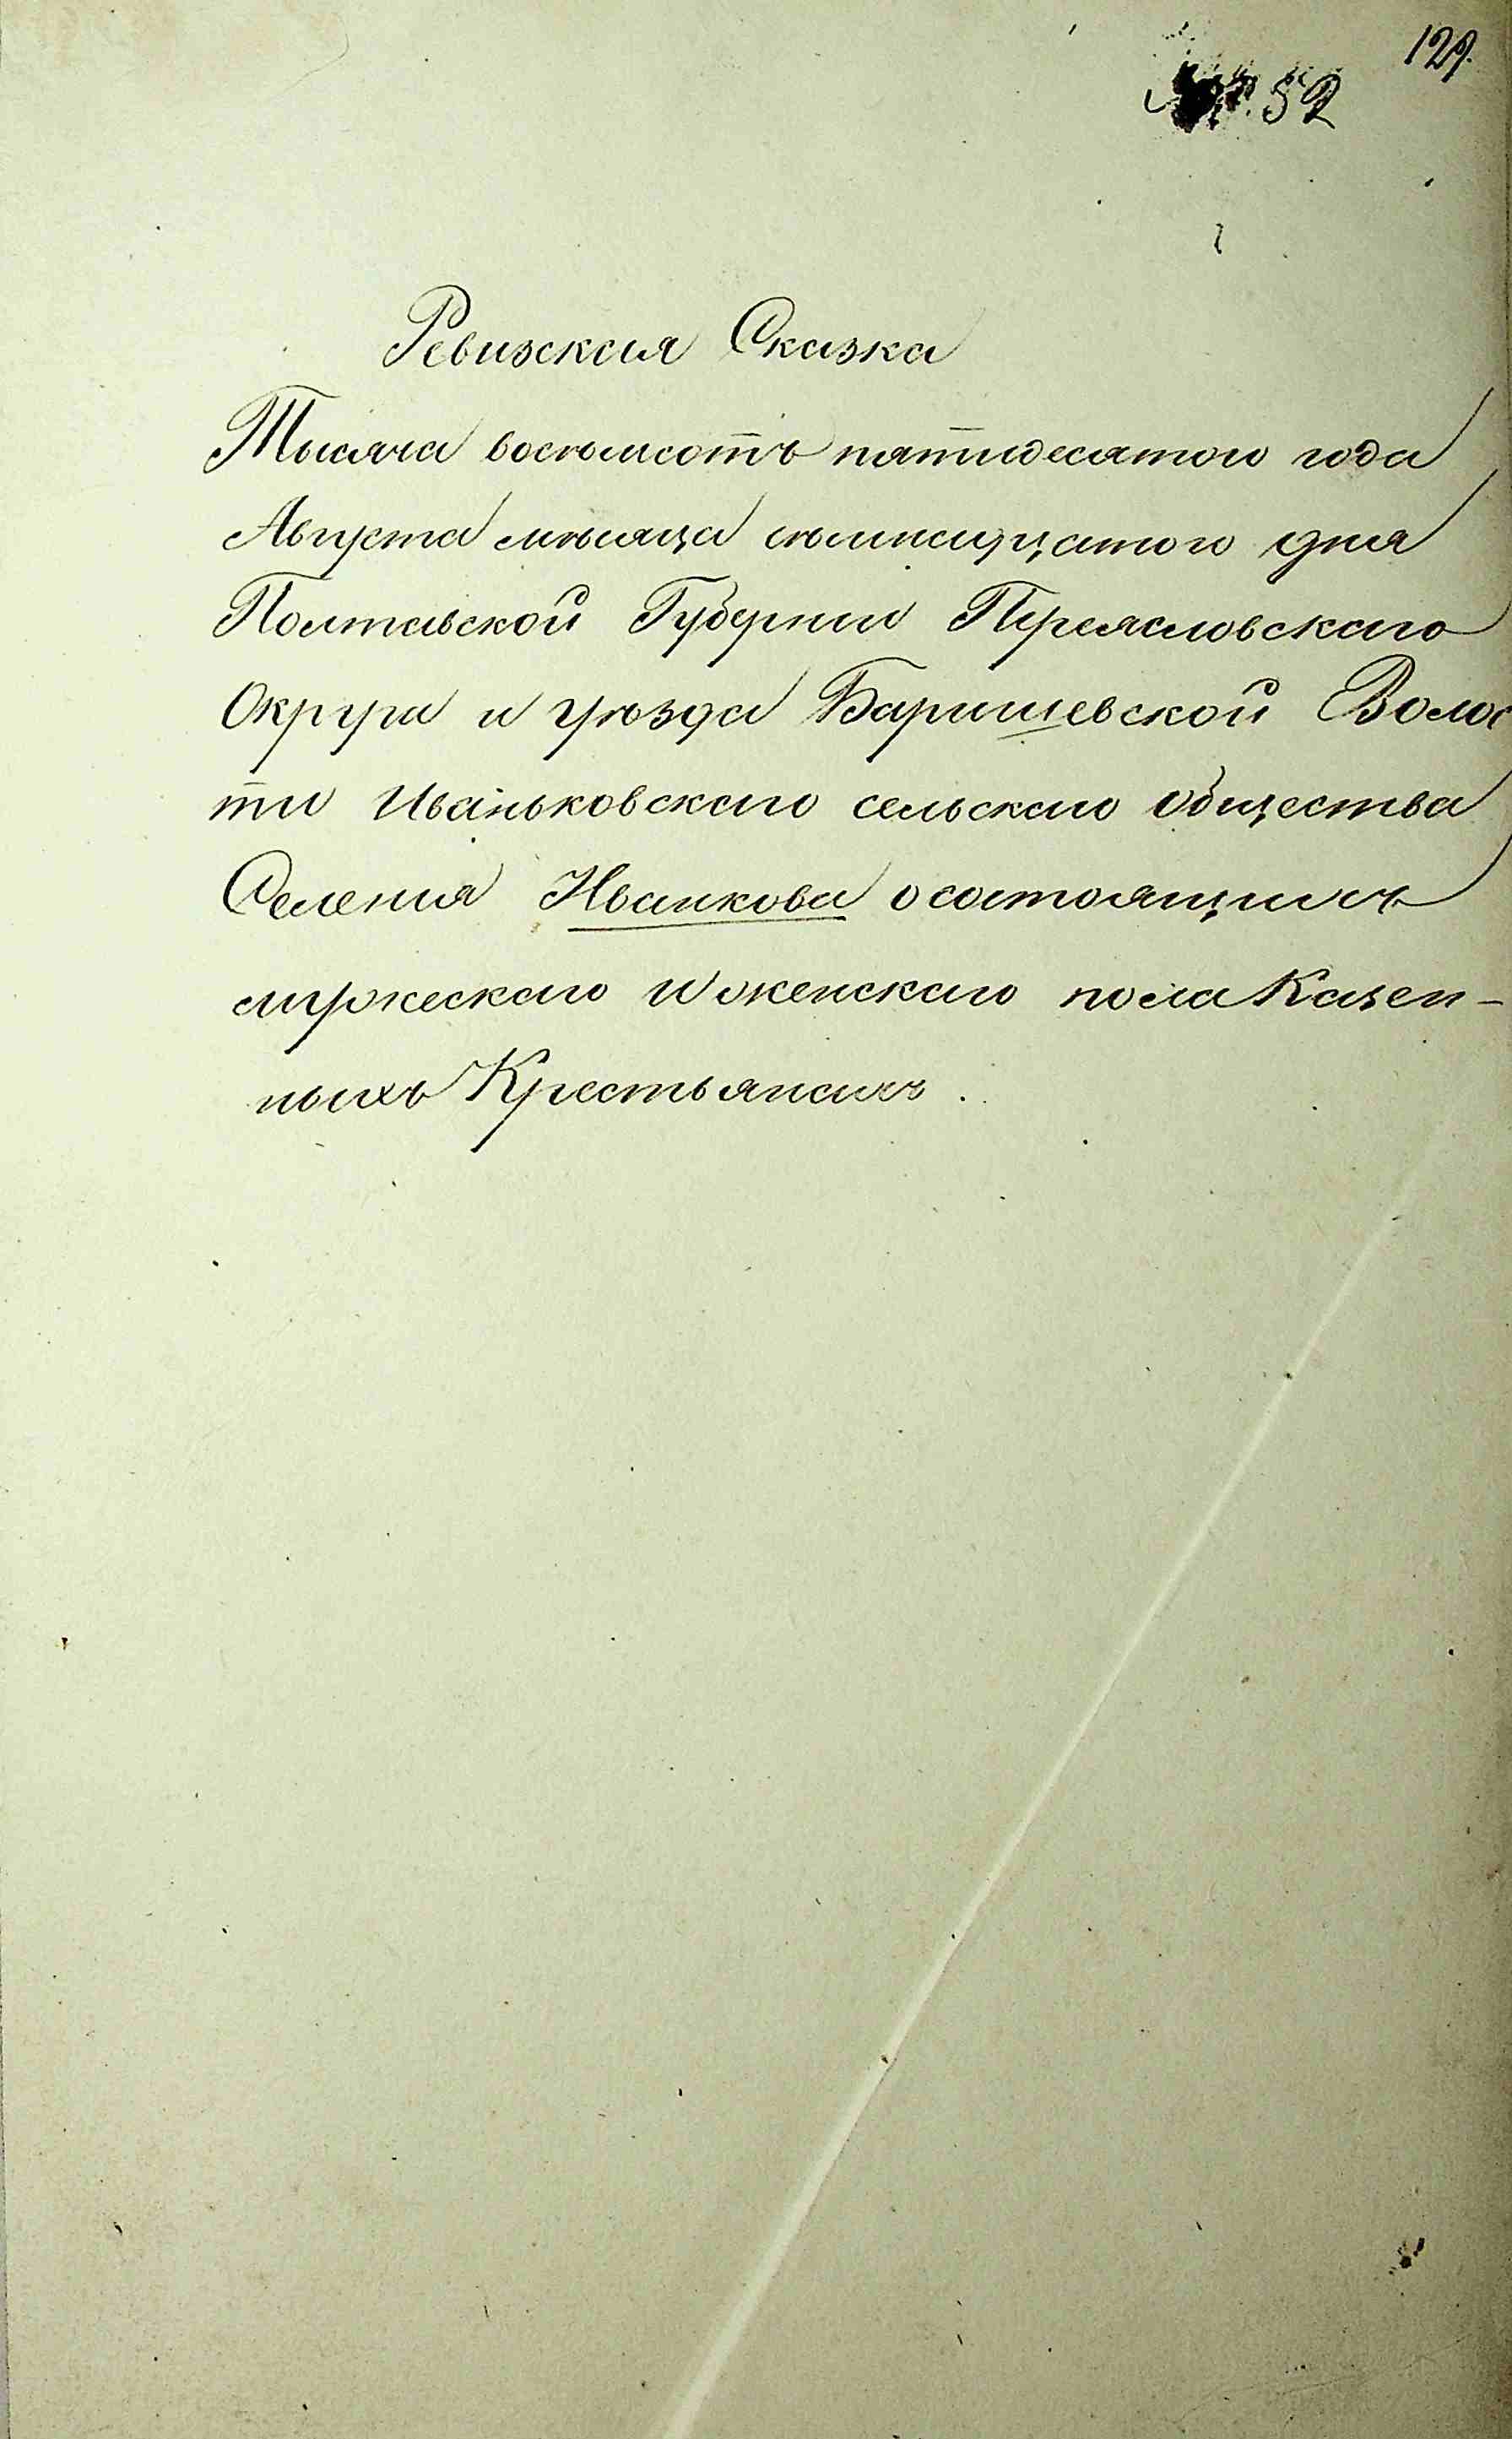 129.
№ 52
Ревизская Сказка
Тысяча восемьсотъ пятидесятого года
Августа мѣсяца дня
Полтавской Губернии Переясловскаго
Округа и уѣзда Баришевской Волос
ти Иваньковскаго сельскаго общества
Селения Иванкова о состоящихъ
мужескаго и женскаго пола Казен-
ныхъ Крестьянахъ.